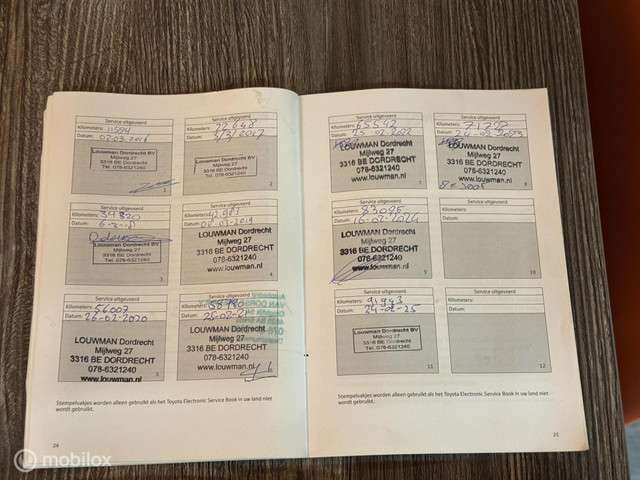 Service uitgevoerd
Kilometers: 11594
Datum: 02-03-2016
Louwman Dordrecht BV
Mijlweg 27
3316 BE Dordrecht
Tel. 078-6321240
1
Service uitgevoerd
Kilometers: 22648
Datum: 3/3/2017
Louwman Dordrecht BV
Mijlweg 27
3316 BE Dordrecht
Tel. 078-6321240
2
Service uitgevoerd
Kilometers: 34320
Datum:
Louwman Dordrecht BV
Mijlweg 27
3316 BE Dordrecht
Tel. 078-6321240
3
Service uitgevoerd
Kilometers:
Datum:
LOUWMAN Dordrecht
Mijlweg 27
3316 BE DORDRECHT
078-6321240
www.louwman.nl
4
Service uitgevoerd
Kilometers: 56007
Datum: 26-02-2020
LOUWMAN Dordrecht
Mijlweg 27
3316 BE DORDRECHT
078-6321240
www.louwman.nl
5
Service uitgevoerd
Kilometers:
Datum:
LOUWMAN Dordrecht
Mijlweg 27
3316 BE DORDRECHT
078-6321240
www.louwman.nl
6
Stempelvakjes worden alleen gebruikt als het Toyota Electronic Service Book in uw land niet
wordt gebruikt.
24
Service uitgevoerd
Kilometers:
Datum:
LOUWMAN Dordrecht
Mijlweg 27
3316 BE DORDRECHT
078-6321240
www.louwman.nl
7
Service uitgevoerd
Kilometers:
Datum: 24-02-2023
LOUWMAN Dordrecht
Mijlweg 27
3316 BE DORDRECHT
078-6321240
www.louwman.nl
8
Service uitgevoerd
Kilometers: 83025
Datum: 16-02-2024
LOUWMAN Dordrecht
Mijlweg 27
3316 BE DORDRECHT
078-6321240
www.louwman.nl
9
Service uitgevoerd
Kilometers:
Datum:
10
Service uitgevoerd
Kilometers: 91993
Datum: 24-02-25
Louwman Dordrecht BV
Mijlweg 27
3316 BE Dordrecht
Tel. 078-6321240
11
Service uitgevoerd
Kilometers:
Datum:
12
Stempelvakjes worden alleen gebruikt als het Toyota Electronic Service Book in uw land niet
wordt gebruikt.
25
mobilox